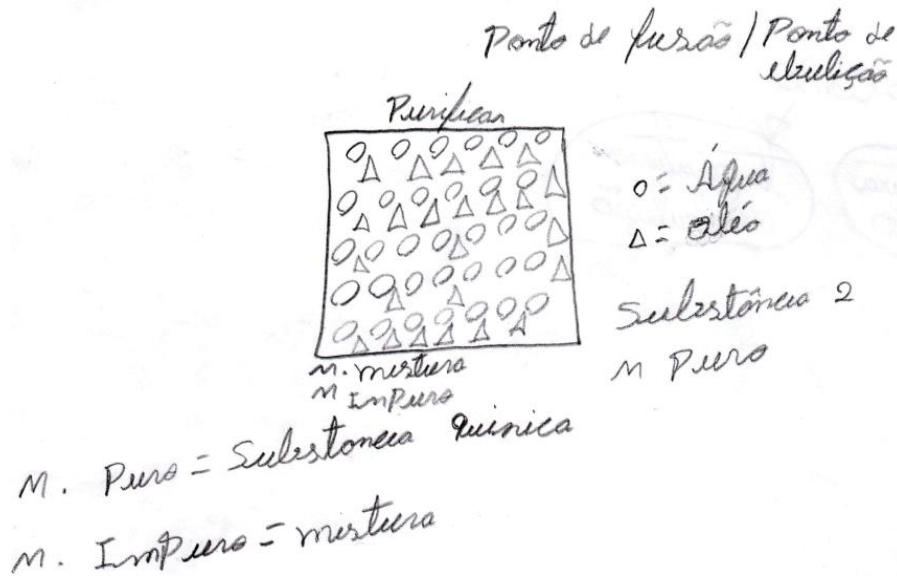 Ponto de fusão / Ponto de
ebulição
Purificar
o = Água
Δ = óleo
Substância 2
M Puro
M. mistura
M Impuro
M. Puro = Substancia Quimica
M. Impuro = mistura